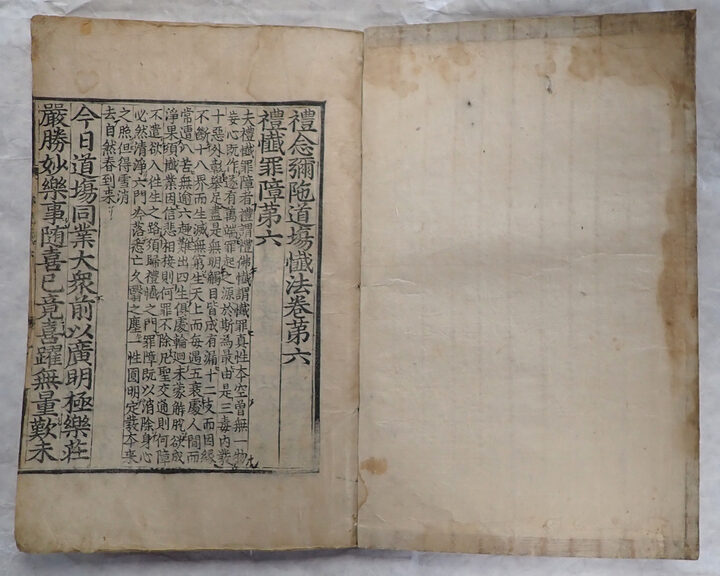 禮念彌陁道塲懺法卷第六
禮懺罪障第六
夫禮懺罪障者禮謂禮佛懺謂懺罪真性本空曾無一物
妄心旣作遂有萬端罪起之源於斯為最由是三毒內發
十惡外彰舉足盡是無明觸目皆成有漏十二支而因緣
不斷十八界而生滅無窮生天上而每遇五衰處人間而
常遭八苦無逾六趣難出四生俱處輪迴未蒙解脫欲求
淨果須懺業因信悲相接則何罪不除凡聖交通則何障
不遣欲往生之路須歸禮懺之門罪障旣以消除身心
必然清淨六門落悉亡久翳之塵一性圓明定發本來
之照但得雪消
去自然春到來
今日道塲同業大衆前以廣明極樂莊
嚴勝妙樂事随喜已竟喜躍無量歎未